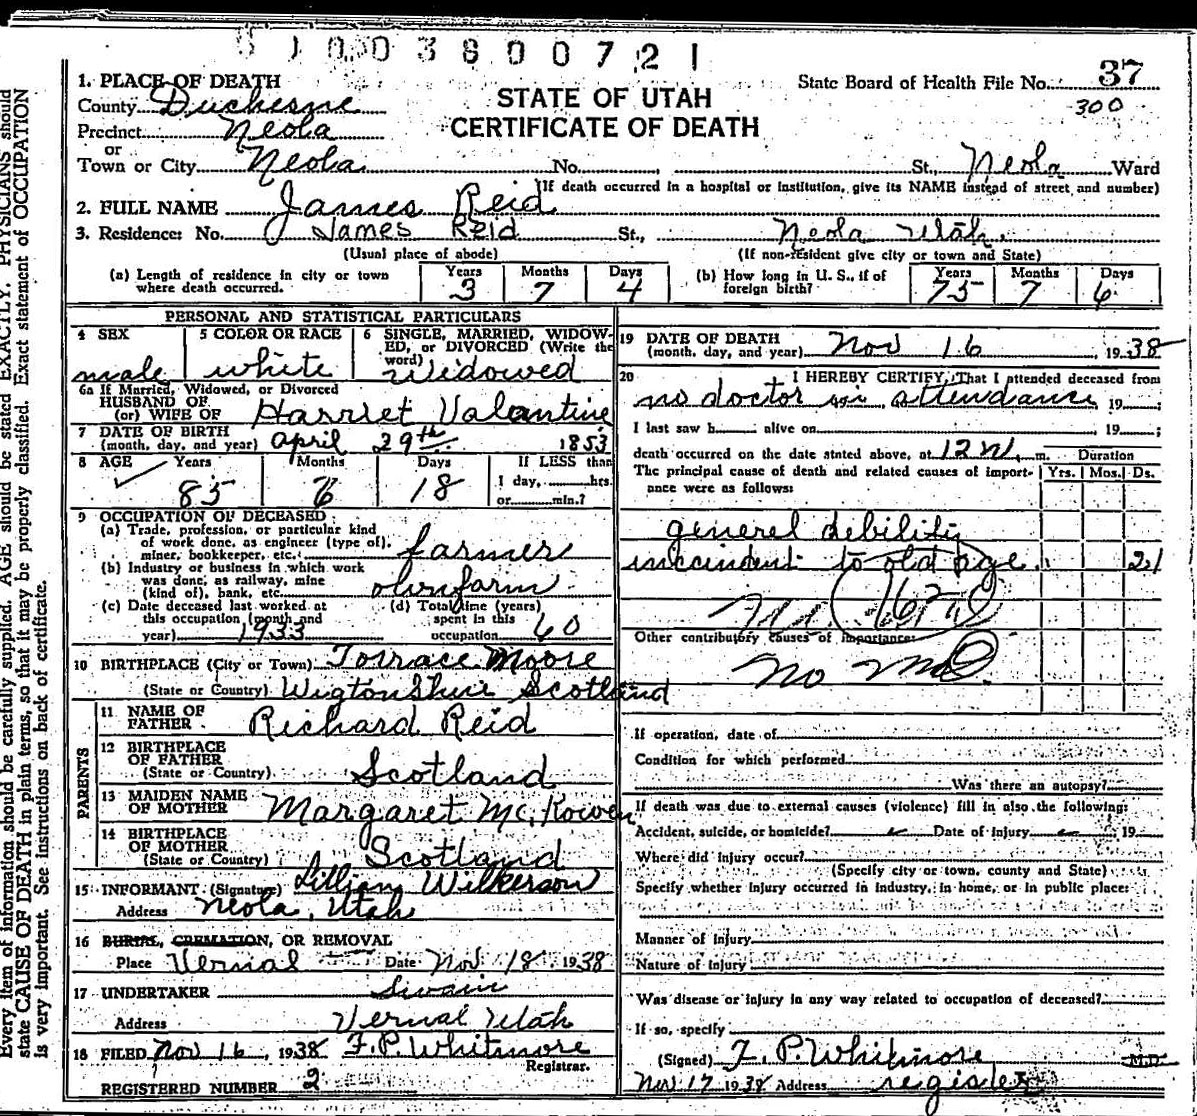 1003800721
1. PLACE OF DEATH
State Board of Health File No. 37
County Duchesne
STATE OF UTAH
300
Precinct Neola
CERTIFICATE OF DEATH
or
Town or City Neola No. St., Neola Ward
(If death occurred in a hospital or institution, give its NAME instead of street and number)
2. FULL NAME James Reid
3. Residence: No. James Reid St., Neola Utah.
(Usual place of abode) (If non-resident give city or town and State)
(a) Length of residence in city or town where death occurred. Years 3 Months 7 Days 4
(b) How long in U. S., if of foreign birth? Years 75 Months 7 Days 6
PERSONAL AND STATISTICAL PARTICULARS
4 SEX male
5 COLOR OR RACE white
6 SINGLE, MARRIED, WIDOWED, or DIVORCED (Write the word) Widowed
6a If Married, Widowed, or Divorced
HUSBAND OF
(or) WIFE OF Harriet Valantine
7 DATE OF BIRTH
(month, day, and year) April 29th 1853
8 AGE Years 85 Months 6 Days 18 If LESS than
1 day, hrs.
or min.?
9 OCCUPATION OF DECEASED
(a) Trade, profession, or particular kind
of work done, as engineer (type of),
miner, bookkeeper, etc. farmer
(b) Industry or business in which work
was done, as railway, mine
(kind of), bank, etc. own farm
(c) Date deceased last worked at
this occupation (month and
year) 1933
(d) Total time (years)
spent in this
occupation 60
10 BIRTHPLACE (City or Town) Torrace Moore
(State or Country) Wigtonshire Scotland
PARENTS
11 NAME OF
FATHER Richard Reid
12 BIRTHPLACE
OF FATHER
(State or Country) Scotland
13 MAIDEN NAME
OF MOTHER Margaret McKowen
14 BIRTHPLACE
OF MOTHER
(State or Country) Scotland
15 INFORMANT (Signature) Lillian Wilkerson
Address Neola, Utah
16 BURIAL, CREMATION, OR REMOVAL
Place Vernal Date Nov 18 1938
17 UNDERTAKER Swain
Address Vernal Utah
18 FILED Nov 16, 1938 F.P. Whitmore
Registrar.
REGISTERED NUMBER 2
19 DATE OF DEATH
(month, day, and year) Nov 16 1938
20 I HEREBY CERTIFY, That I attended deceased from
no doctor in attendance 19 ;
I last saw h alive on 19 ;
death occurred on the date stated above, at 12 m. Duration
The principal cause of death and related causes of importance were as follows: Yrs. Mos. Ds.
general debility
inccindent to old age. 21
162
Other contributory causes of importance:
no MD
If operation, date of
Condition for which performed
Was there an autopsy?
If death was due to external causes (violence) fill in also the following:
Accident, suicide, or homicide? Date of injury 19
Where did injury occur?
(Specify city or town, county and State)
Specify whether injury occurred in industry, in home, or in public place:
Manner of Injury
Nature of Injury
Was disease or injury in any way related to occupation of deceased?
If so, specify
(Signed) F. P. Whitmore M.D.
Nov 17 1938 Address register
Every item of information should be carefully supplied. AGE should be stated EXACTLY. PHYSICIANS should
state CAUSE OF DEATH in plain terms, so that it may be properly classified. Exact statement of OCCUPATION
is very important. See instructions on back of certificate.